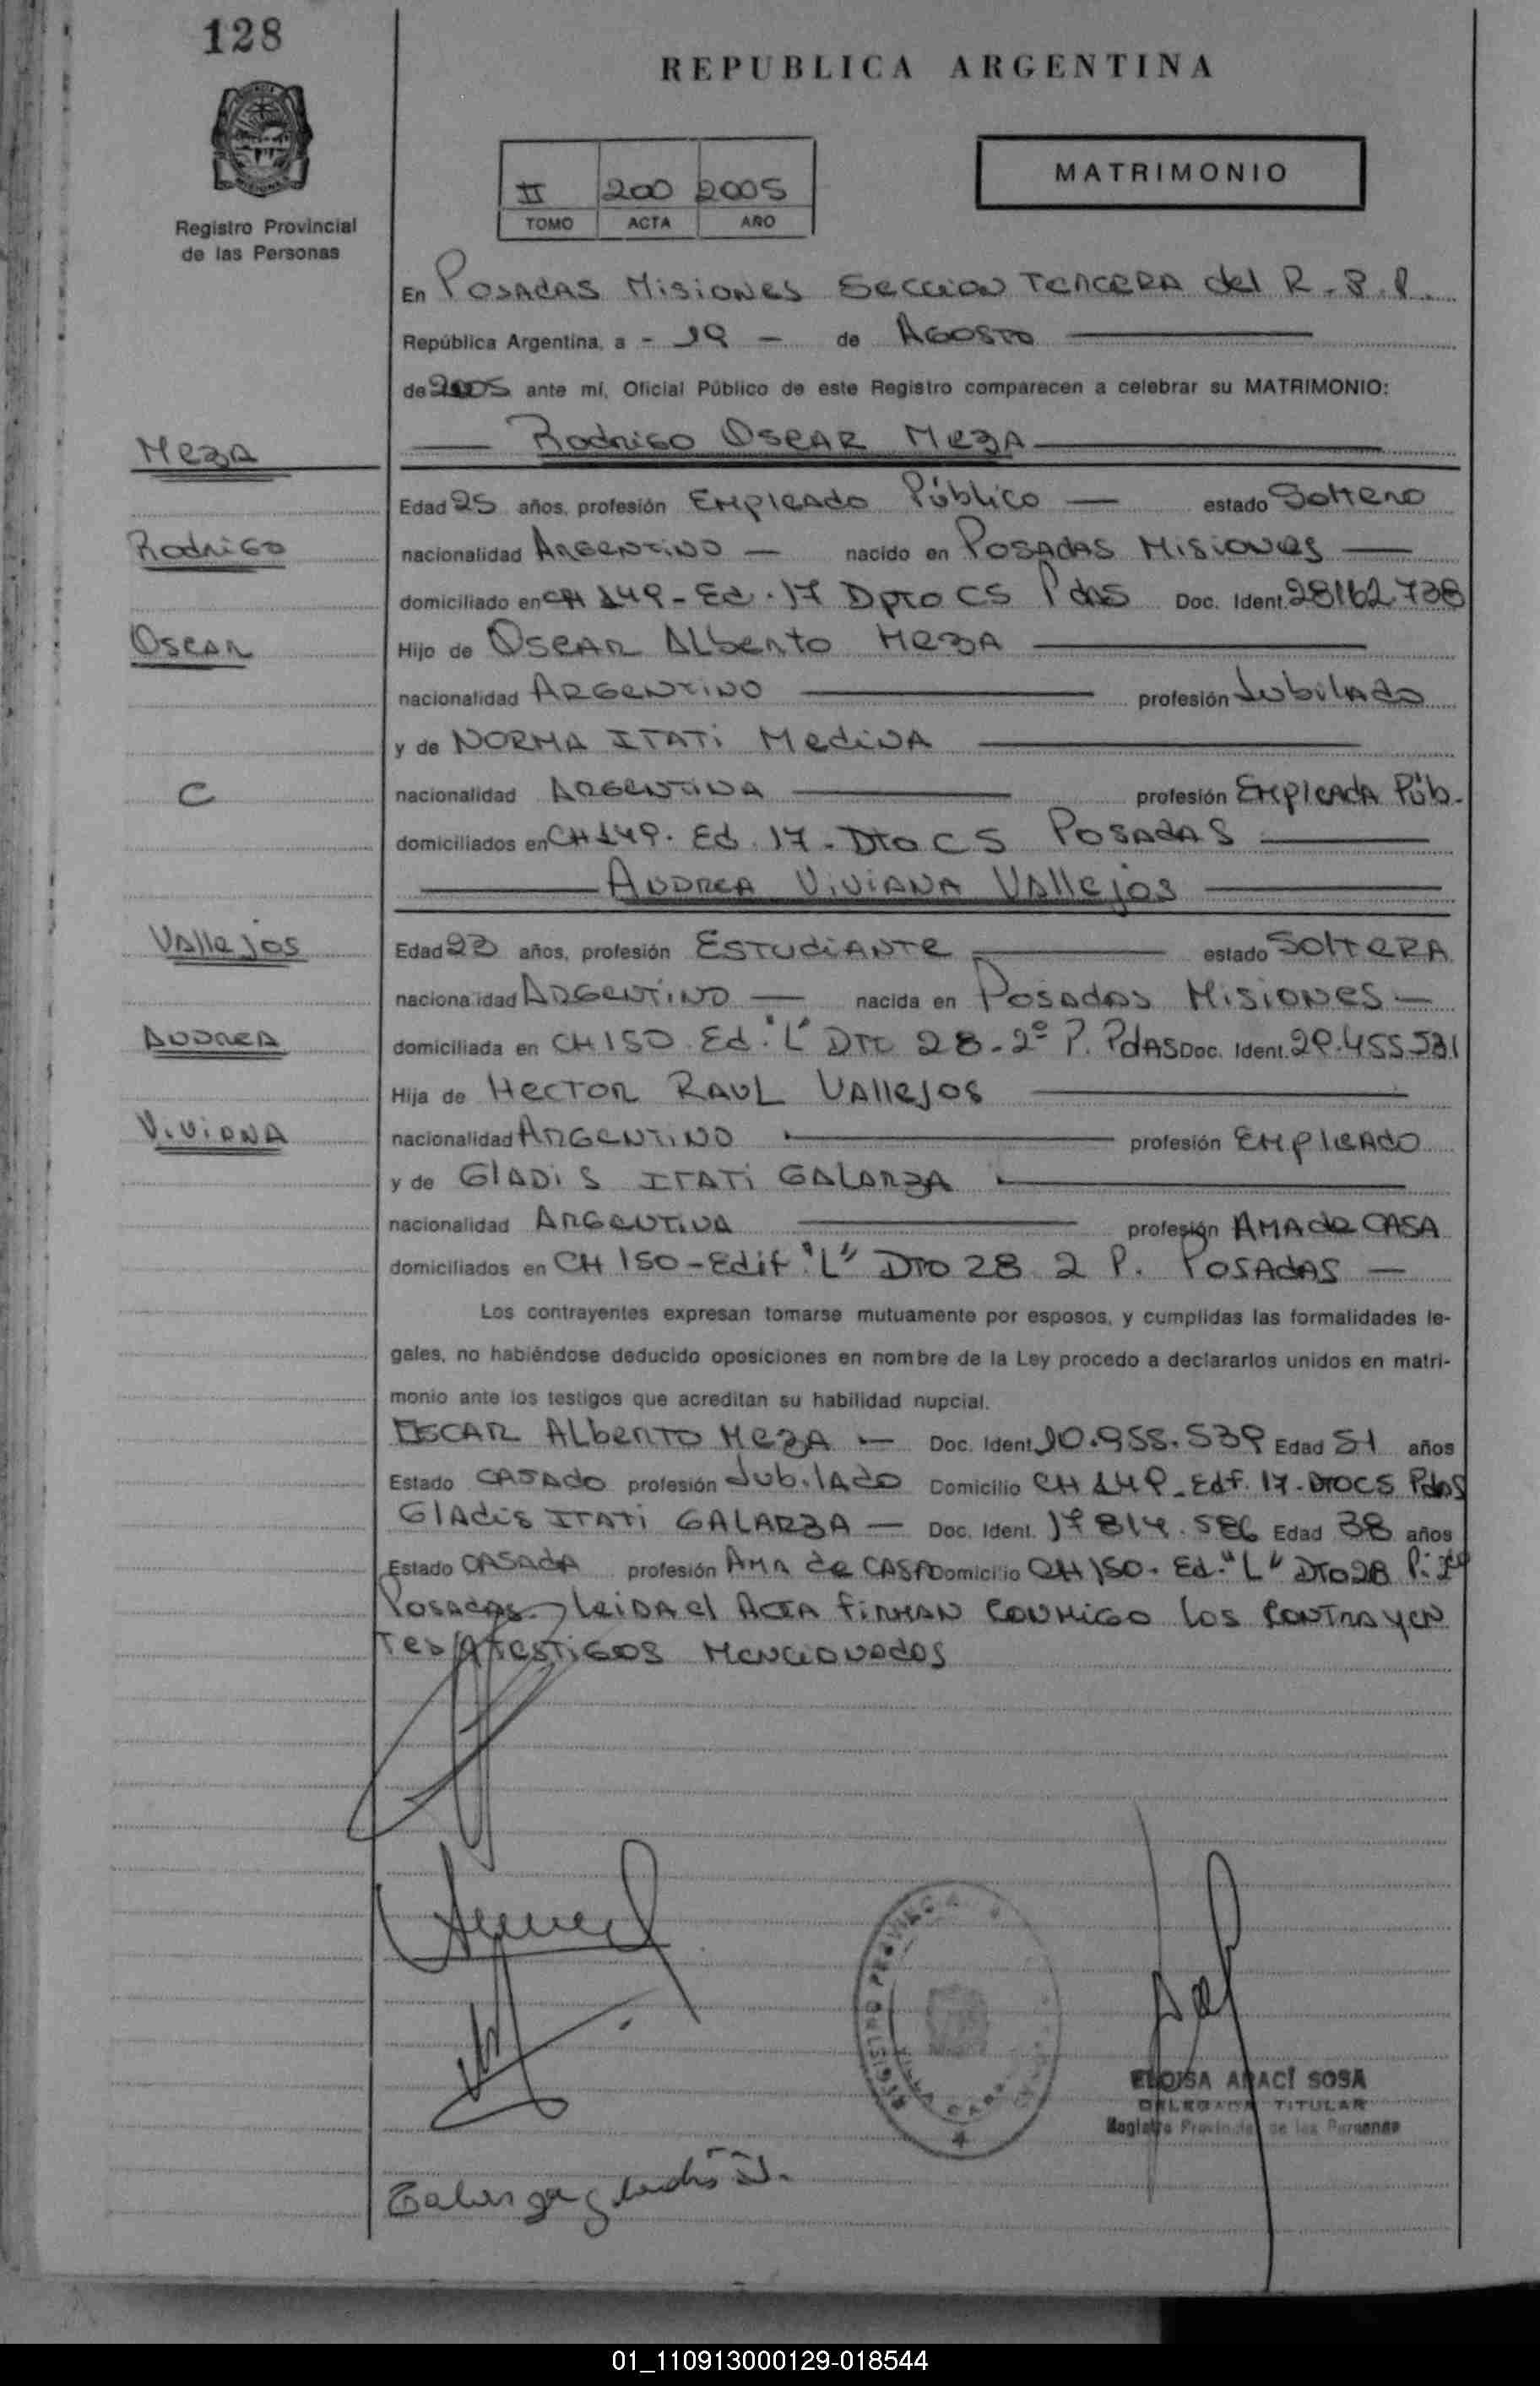 128
REPUBLICA ARGENTINA
Registro Provincial
de las Personas
II 200 2005
TOMO ACTA AÑO
MATRIMONIO
En Posadas Misiones Seccion Tercera del R.P.P.
República Argentina, a - 19 - de Agosto
de 2005 ante mí, Oficial Público de este Registro comparecen a celebrar su MATRIMONIO:
Meza
Rodrigo Oscar Meza
Edad 25 años, profesión Empleado Público — estado Soltero
Rodrigo
nacionalidad Argentino — nacido en Posadas Misiones —
domiciliado en CH 149 - Ed. 17 Dpto CS Pdas Doc. Ident. 28162.738
Oscar
Hijo de Oscar Alberto Meza
nacionalidad Argentino profesión Jubilado
y de NORMA ITATI Medina
C
nacionalidad Argentina profesión Empleada Púb.
domiciliados en CH 149. Ed. 17 - Dto CS Posadas
Andrea Viviana Vallejos
Vallejos
Edad 23 años, profesión ESTUDIANTE estado Soltera
nacionalidad Argentino — nacida en Posadas Misiones —
Andrea
domiciliada en CH 150 Ed. "L" Dto 28 - 2º P. Pdas Doc. Ident. 29.455.531
Hija de Hector Raul Vallejos
Viviana
nacionalidad Argentino profesión Empleado
y de Gladis Itati Galarza
nacionalidad Argentina profesión Ama de Casa
domiciliados en CH 150 - Edif "L" Dto 28 2 P. Posadas —
Los contrayentes expresan tomarse mutuamente por esposos, y cumplidas las formalidades le-
gales, no habiéndose deducido oposiciones en nombre de la Ley procedo a declararlos unidos en matri-
monio ante los testigos que acreditan su habilidad nupcial.
Oscar Alberto Meza — Doc. Ident. 10.955.539 Edad 51 años
Estado Casado profesión Jubilado Domicilio CH 149 - Edf. 17 - Dto CS Pdas
Gladis Itati Galarza — Doc. Ident. 17 814.586 Edad 38 años
Estado Casada profesión Ama de Casa Domicilio CH 150 - Ed. "L" Dto 28 P:
Posadas leida el Acta firman conmigo los contrayen
tes testigos mencionados
REGISTRO PROVINC
ELOISA ARACÍ SOSA
DELEGADA TITULAR
Registro Provincial de las Personas
Galarza gladis I.
01_110913000129-018544